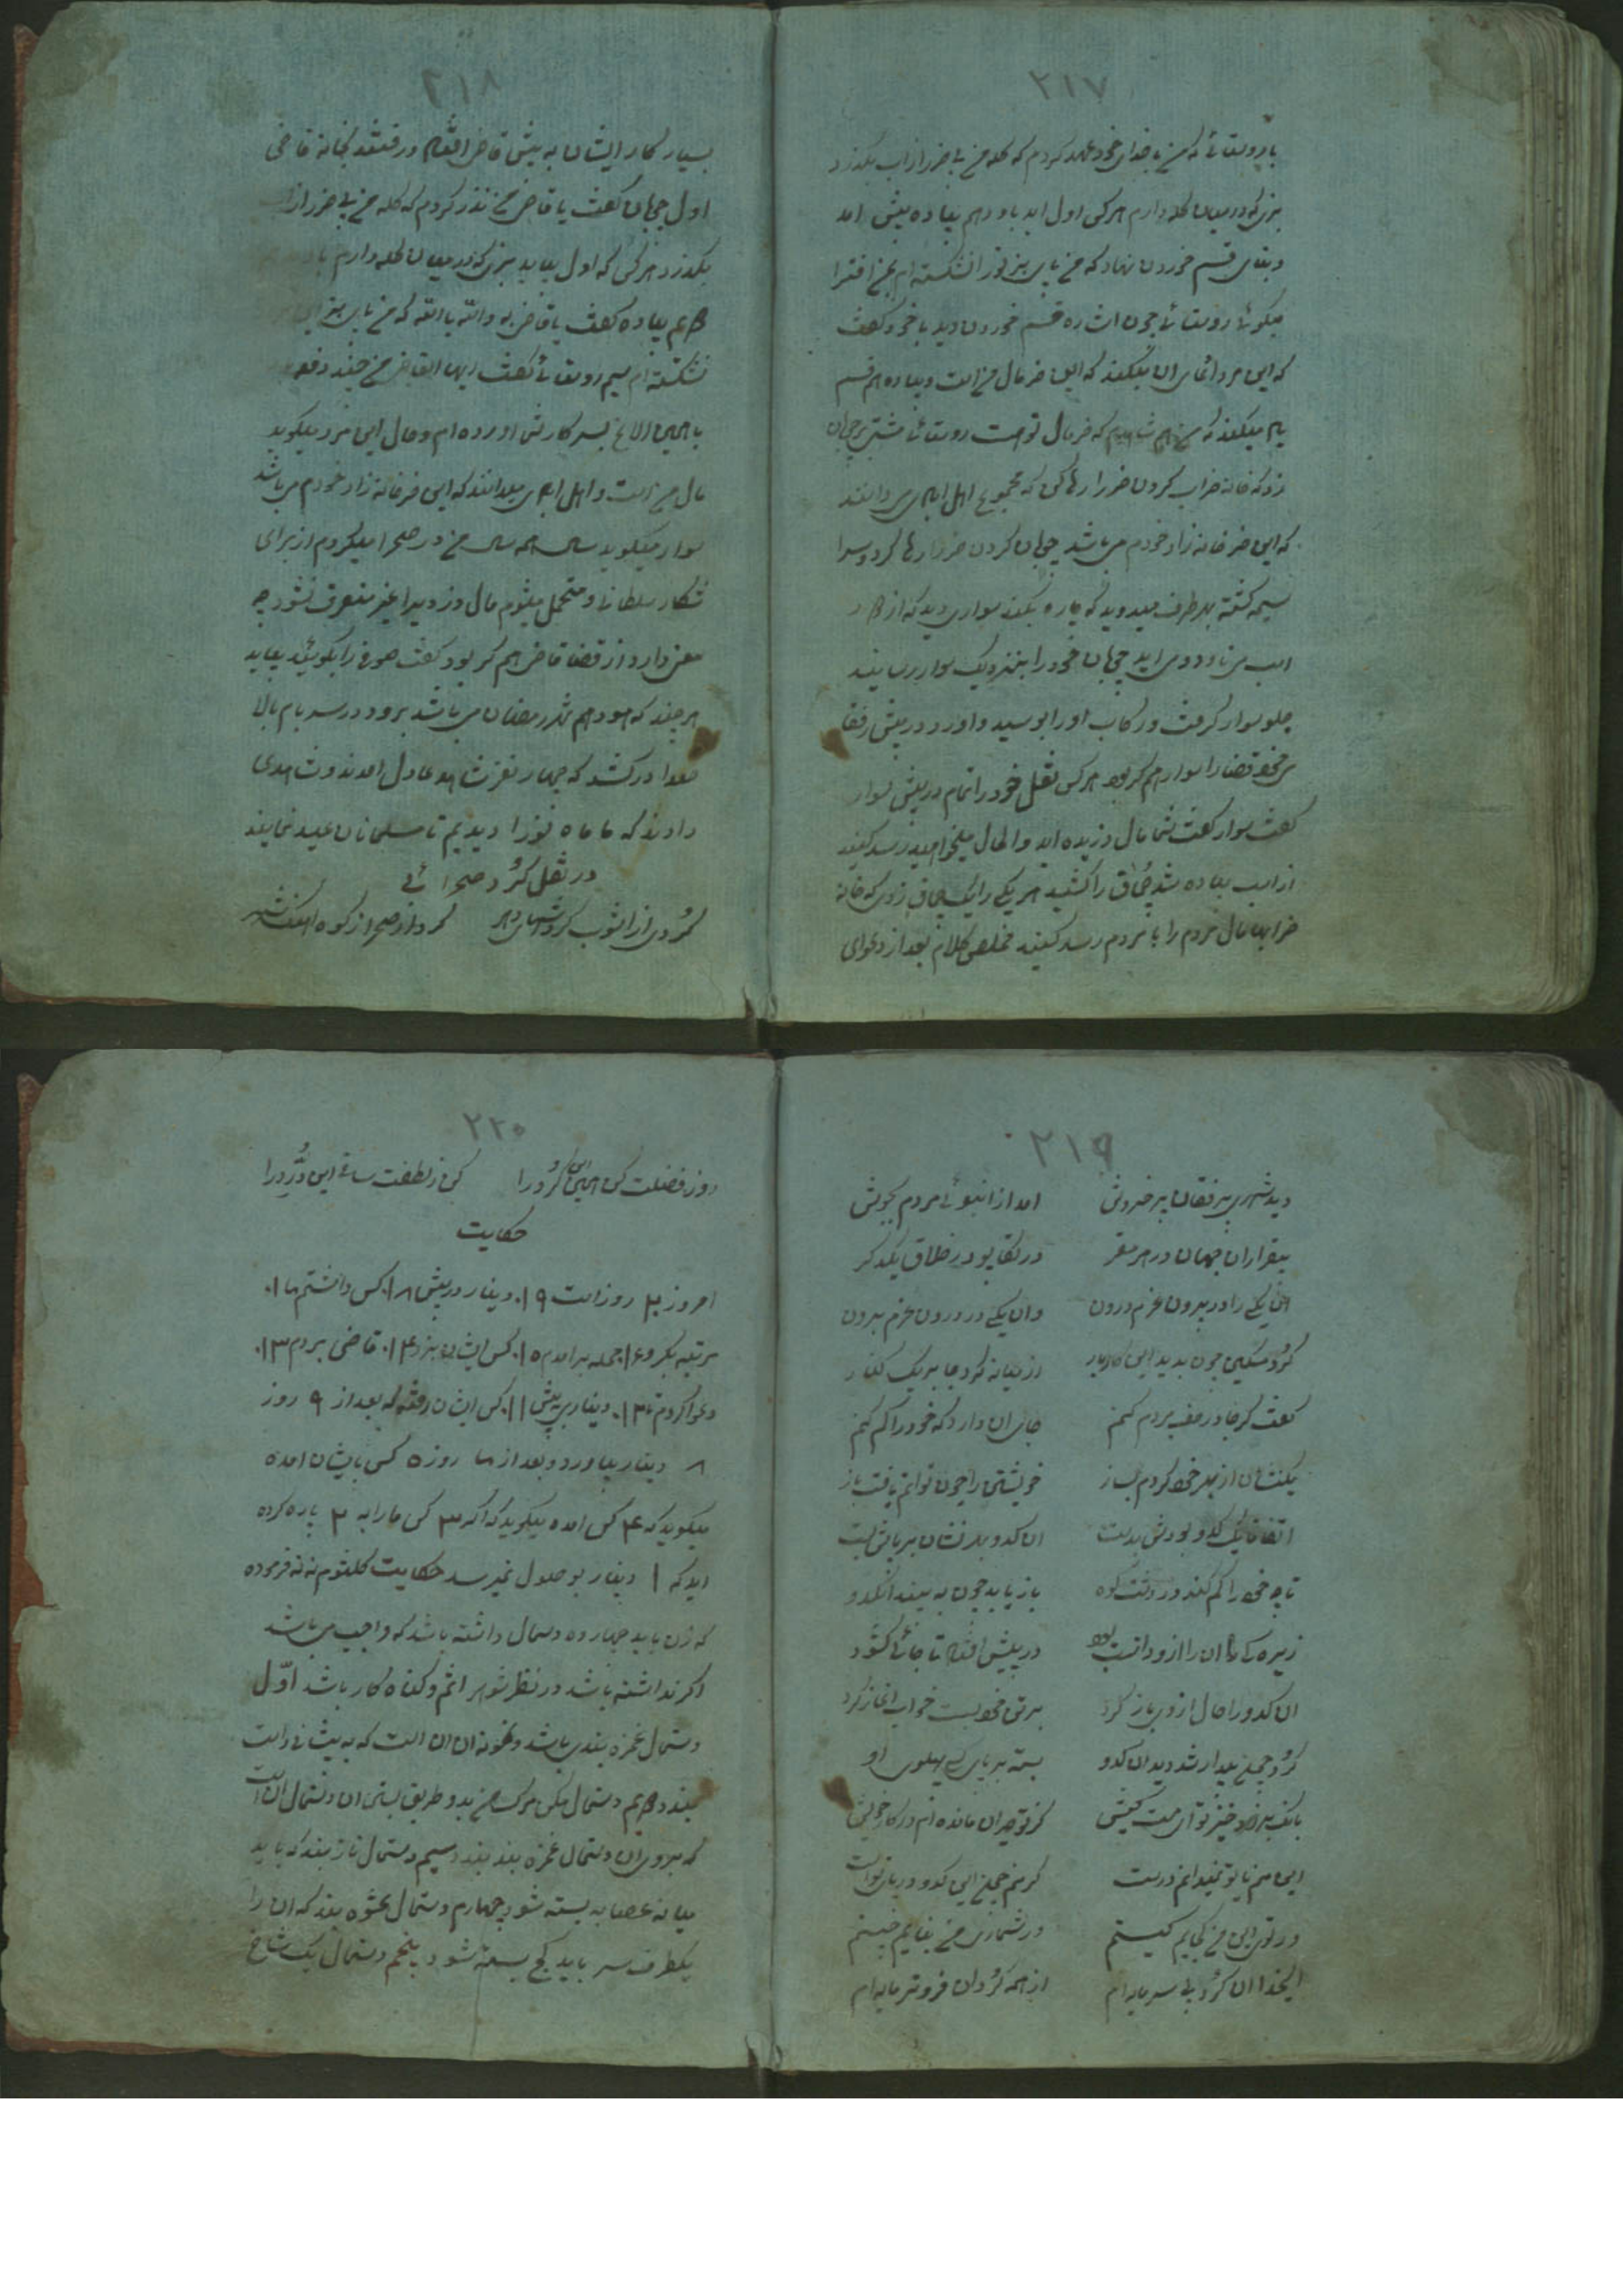 ۲۱۷
با روستائی که من با خدای خود عهد کردم که گله من بی ضرر از آب بگذرد
بزی که در میان گله دارم هر کس اول آید باو دهم پیاده پیش آمد
و بنای قسم خوردن نهاد که من پای بز تو را نشکسته ام بمن افترا
میگوئی روستائی چون اشاره قسم خوردن دید با خود گفت
که این مرد ادعای آن میکند که این خر مال من است و پیاده هم قسم
یاد میکند که من هم شاهدم که خر مال تو است روستائی مشتی بر چوپان
زد که خانه خراب کردن خر را رها کن که مجموع اهل آبادی می دانند
که این خر خانه زاد خودم می باشد چوپان گردن خر را رها کرد و سرا
سیمه گشته بهر طرف میدوید که چاره بکند سواری دید که از دور
اسب می تازد و می آید چوپان خود را بنزدیک سوار رسانید
جلو سوار گرفت و رکاب او را بوسید و آورد در پیش رفقا
من جمله قضا را سوار هم کر بود هر کس نقل خود را تمام در پیش سوار
گفت سوار گفت شما مال دزدیده اید والحال میخواهید رسد کنید
از اسب پیاده شد چماق را کشید هر یکی را یک چماق زد که خانه
خرابها مال مردم را با مردم رسد کنید مخلص کلام بعد از دعوای
۲۱۸
بسیار کار ایشان به پیش قاضی افتاد و رفتند بخانه قاضی
اول چوپان گفت یا قاضی من نذر کردم که گله من بی ضرر از
بگذرد هر کس که اول بیاید بزی که در میان گله دارم باو
دویم پیاده گفت یا قاضی به والله بالله که من پای بز
نشکسته ام سیم روستائی گفت ایها القاضی من چند دفعه
با همین الاغ بسر کار تو آورده ام و حال این مرد میگوید
مال من است و اهل آبادی میدانند که این خر خانه زاد خودم می باشد
سوار میگوید سال همه سال من در صحرا میگردم از برای
شکار سلطانی و متحمل میشوم مال دزدی را غیر متفرق نشود چه
معنی دارد از قضا قاضی هم کر بود گفت صوفی را بگوئید بیاید
هر چند که هود هم شهر رمضان می باشد برود در سر بام بالا
صدا در کشد که چهار نفر شاهد عادل آمدند و شهادت
دادند که ما ماه نو را دیدیم تا مسلمانان عید نمایند
در نقل کُرد صحرائی
کُردی از آشوب گردشهای دهر کرد از صحرا ز کوه آهنگ شهر
۲۱۹
دید شهری پر فغان پر خروش آمد از انبوهی مردم بجوش
بیقراران جهان در هر مقر در تکاپو در خلاف یکدگر
آن یکی را در بیرون عزم درون وان یکی در درون عزم برون
کُرد مسکین چون بدید این کار و بار از میانه کرد جا بر یک کنار
گفت گر جا در صف مردم کنم جای آن دارد که خود را گم کنم
یک نشان از بهر خود کردم بساز خویشتن را چون توانم یافت باز
اتفاقا یک کدو بودش بدست آن کدو بهر نشان بر پاش بست
تا چه خود را گم کند در دشت و کوه باز یابد چون به بیند آن کدو
زیرکی آن را از او دانست بود در پیش افتاد تا جائی گشود
آن کدو را حال از وی باز کرد بر تن خود بست خواب آغاز کرد
کُرد چون بیدار شد دید آن کدو بسته بر پای کسی پهلوی او
بانگ برزد خیز تو ای سست کیش کز تو حیران مانده ام در کار خویش
این منم یا تو نمیدانم درست گر منم چون این کدو در پای توست
ور توئی این من کجایم کیستم در شماری من نیایم چیستم
ای خدا آن کُرد بی سرمایه ام از همه کُردان فروتر مایه ام
۲۲۰
روز فضلت کن همین کُرد را کن ز لطفت ساغی این دُرد را
حکایت
امروز ۲۰ روز است ۱۹ دینار در پیش ۱۸ کس داشتم ۱۷
مرتبه بگرو ۱۶ جمله بر آمدم ۱۵ کس ایشان بنزد ۱۴ قاضی بردم ۱۳
دعوا کردم تا ۱۲ دیناری به پیش ۱۱ کس ایشان رفته که بعد از ۹ روز
۸ دینار بیاورد و بعد از ۷ روز ۵ کس بایشان آمده
میگوید که ۴ کس آمده میگوید که اگر ۳ کس ما را به ۲ پاره کرده
اید که ۱ دینار بوصول نمیرسد حکایت کلثوم ننه فرموده
که زن باید چهارده دسمال داشته باشد که واجب می باشد
اگر نداشته باشد در نظر شوهر اثم و گناه کار باشد اوّل
دستمال غمزه بندی باشد و نمونه آن آن است که به پیشانی راست
بندد دویم دستمال مکن مرگ من بد و طریق بستن آن دستمال آن است
که بروی آن دستمال غمزه بند بندد سیم دستمال ناز بند که باید
میانه عصابه بسته شود چهارم دستمال عشوه بند که آن را
یکطرف سر باید کج بسته شود پنجم دستمال یک شاخ